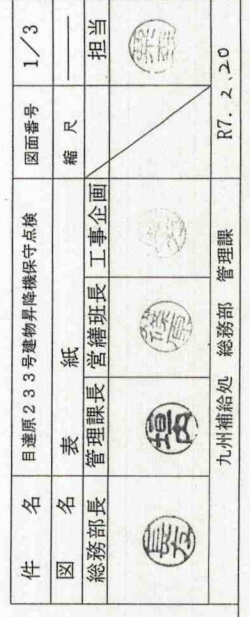 件名 目達原233号建物昇降機保守点検 図面番号 1/3
図名 表紙 縮尺 ――
総務部長 管理課長 営繕班長 工事企画 担当
九州補給処 総務部 管理課 R7.2.20